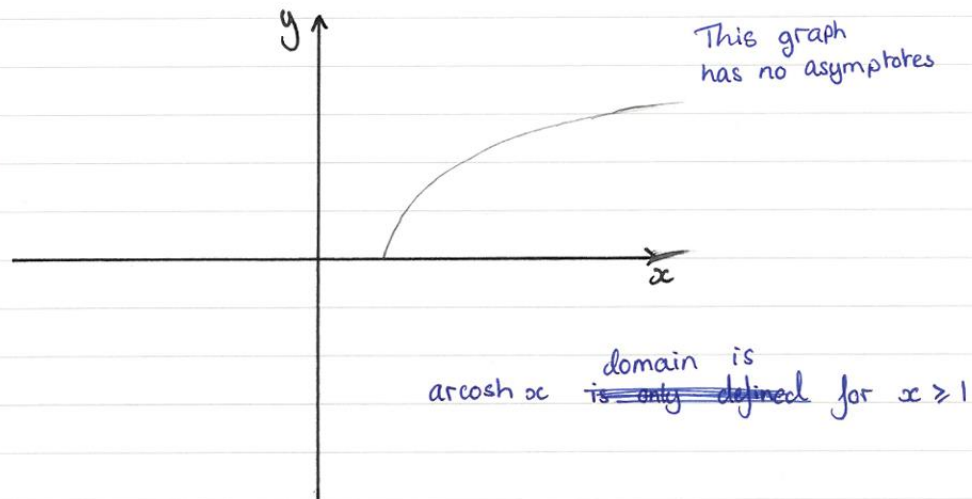 y
This graph
has no asymptotes
x
domain is
arcosh x is only defined for x ⩾ 1